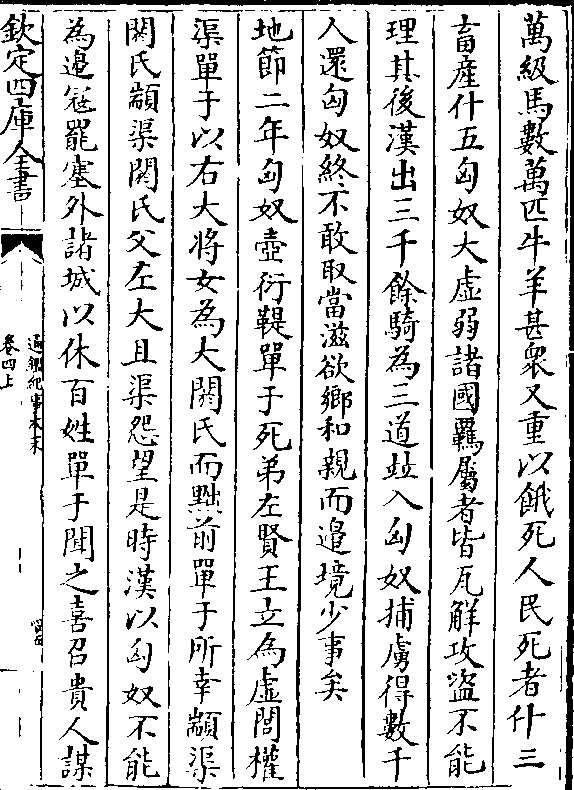 萬級馬數萬匹牛羊甚衆又重以餓死人民死者什三
畜産什五匈奴大虛弱諸國羈屬者皆瓦解攻盜不能
理其後漢出三千餘騎為三道並入匈奴捕虜得數千
人還匈奴終不敢取當滋欲鄉和親而邉境少事矣
地節二年匈奴壺衍鞮單于死弟左賢王立為虛閭權
渠單于以右大將女為大閼氏而黜前單于所幸顓渠
閼氏顓渠閼氏父左大且渠怨望是時漢以匈奴不能
為邉冦罷塞外諸城以休百姓單于聞之喜召貴人謀
欽定四庫全書
通鑑紀事本末
卷四上